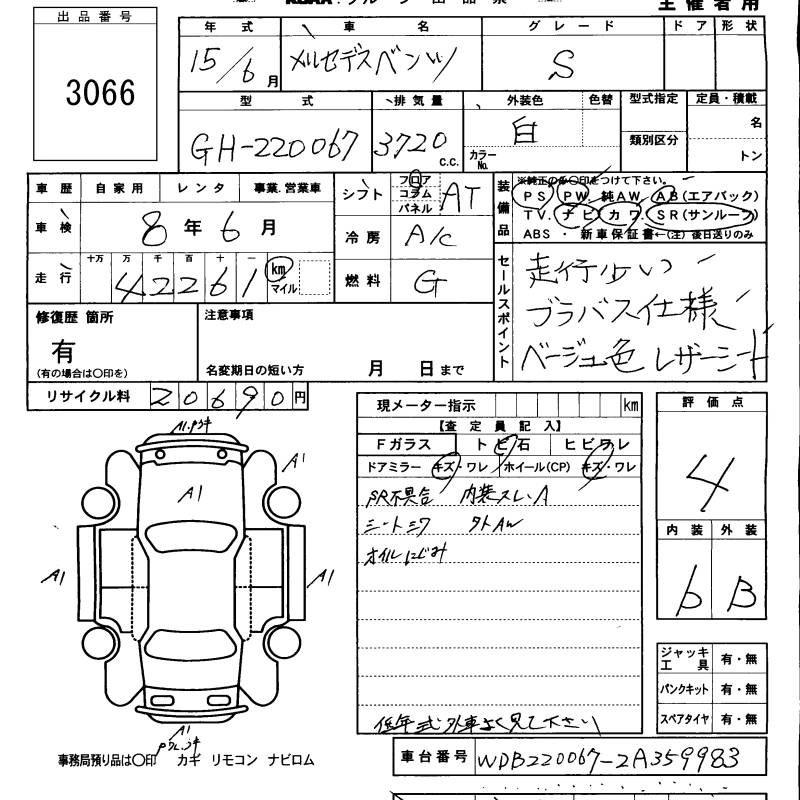 主催者用
出品番号
3066
年式 車名 グレード ドア 形状
15/6月 メルセデスベンツ S
型式 排気量 外装色 色替 型式指定 定員・積載
GH-220067 3720 c.c. 白 カラーNo. 類別区分 名
トン
車歴 自家用 レンタ 事業.営業車
車検 8年6月
走行 十万 万 千 百 十 一 42261 km マイル
シフト フロア コラム パネル AT
冷房 A/C
燃料 G
装備品 ※純正のみ○印をつけて下さい。
PS PW 純AW AB(エアバック)
TV. ナビ カワ SR(サンルーフ)
ABS・ 新車保証書←(注)後日送りのみ
セールスポイント
走行少い
ブラバス仕様
ベージュ色 レザーシート
修復歴 箇所
有
(有の場合は○印を)
注意事項
名変期日の短い方 月 日まで
リサイクル料 20690円
現メーター指示 km
【査定員記入】
Fガラス トビ石 ヒビワレ
ドアミラー キズ・ワレ ホイール(CP) キズ・ワレ
SR不具合 内装スレ.A
シートシワ タトAW
オイルにじみ
低年式外車よく見て下さい
評価点
4
内装 外装
b B
ジャッキ工具 有・無
パンクキット 有・無
スペアタイヤ 有・無
A1
A1
A1
A1
A1
事務局預り品は○印 カギ リモコン ナビロム
車台番号 WDB220067-2A359983